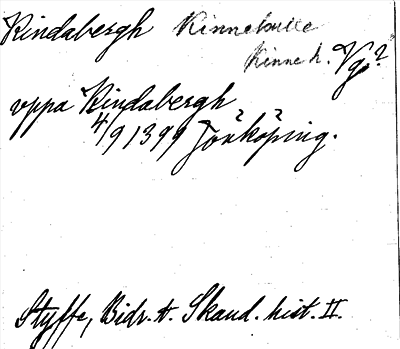 Rindabergh Kinnekulle
Kinne h. Vg?
uppa Rindabergh
4/9 1399 Jönköping.
Styffe, Bidr. t. Skand. hist. II.